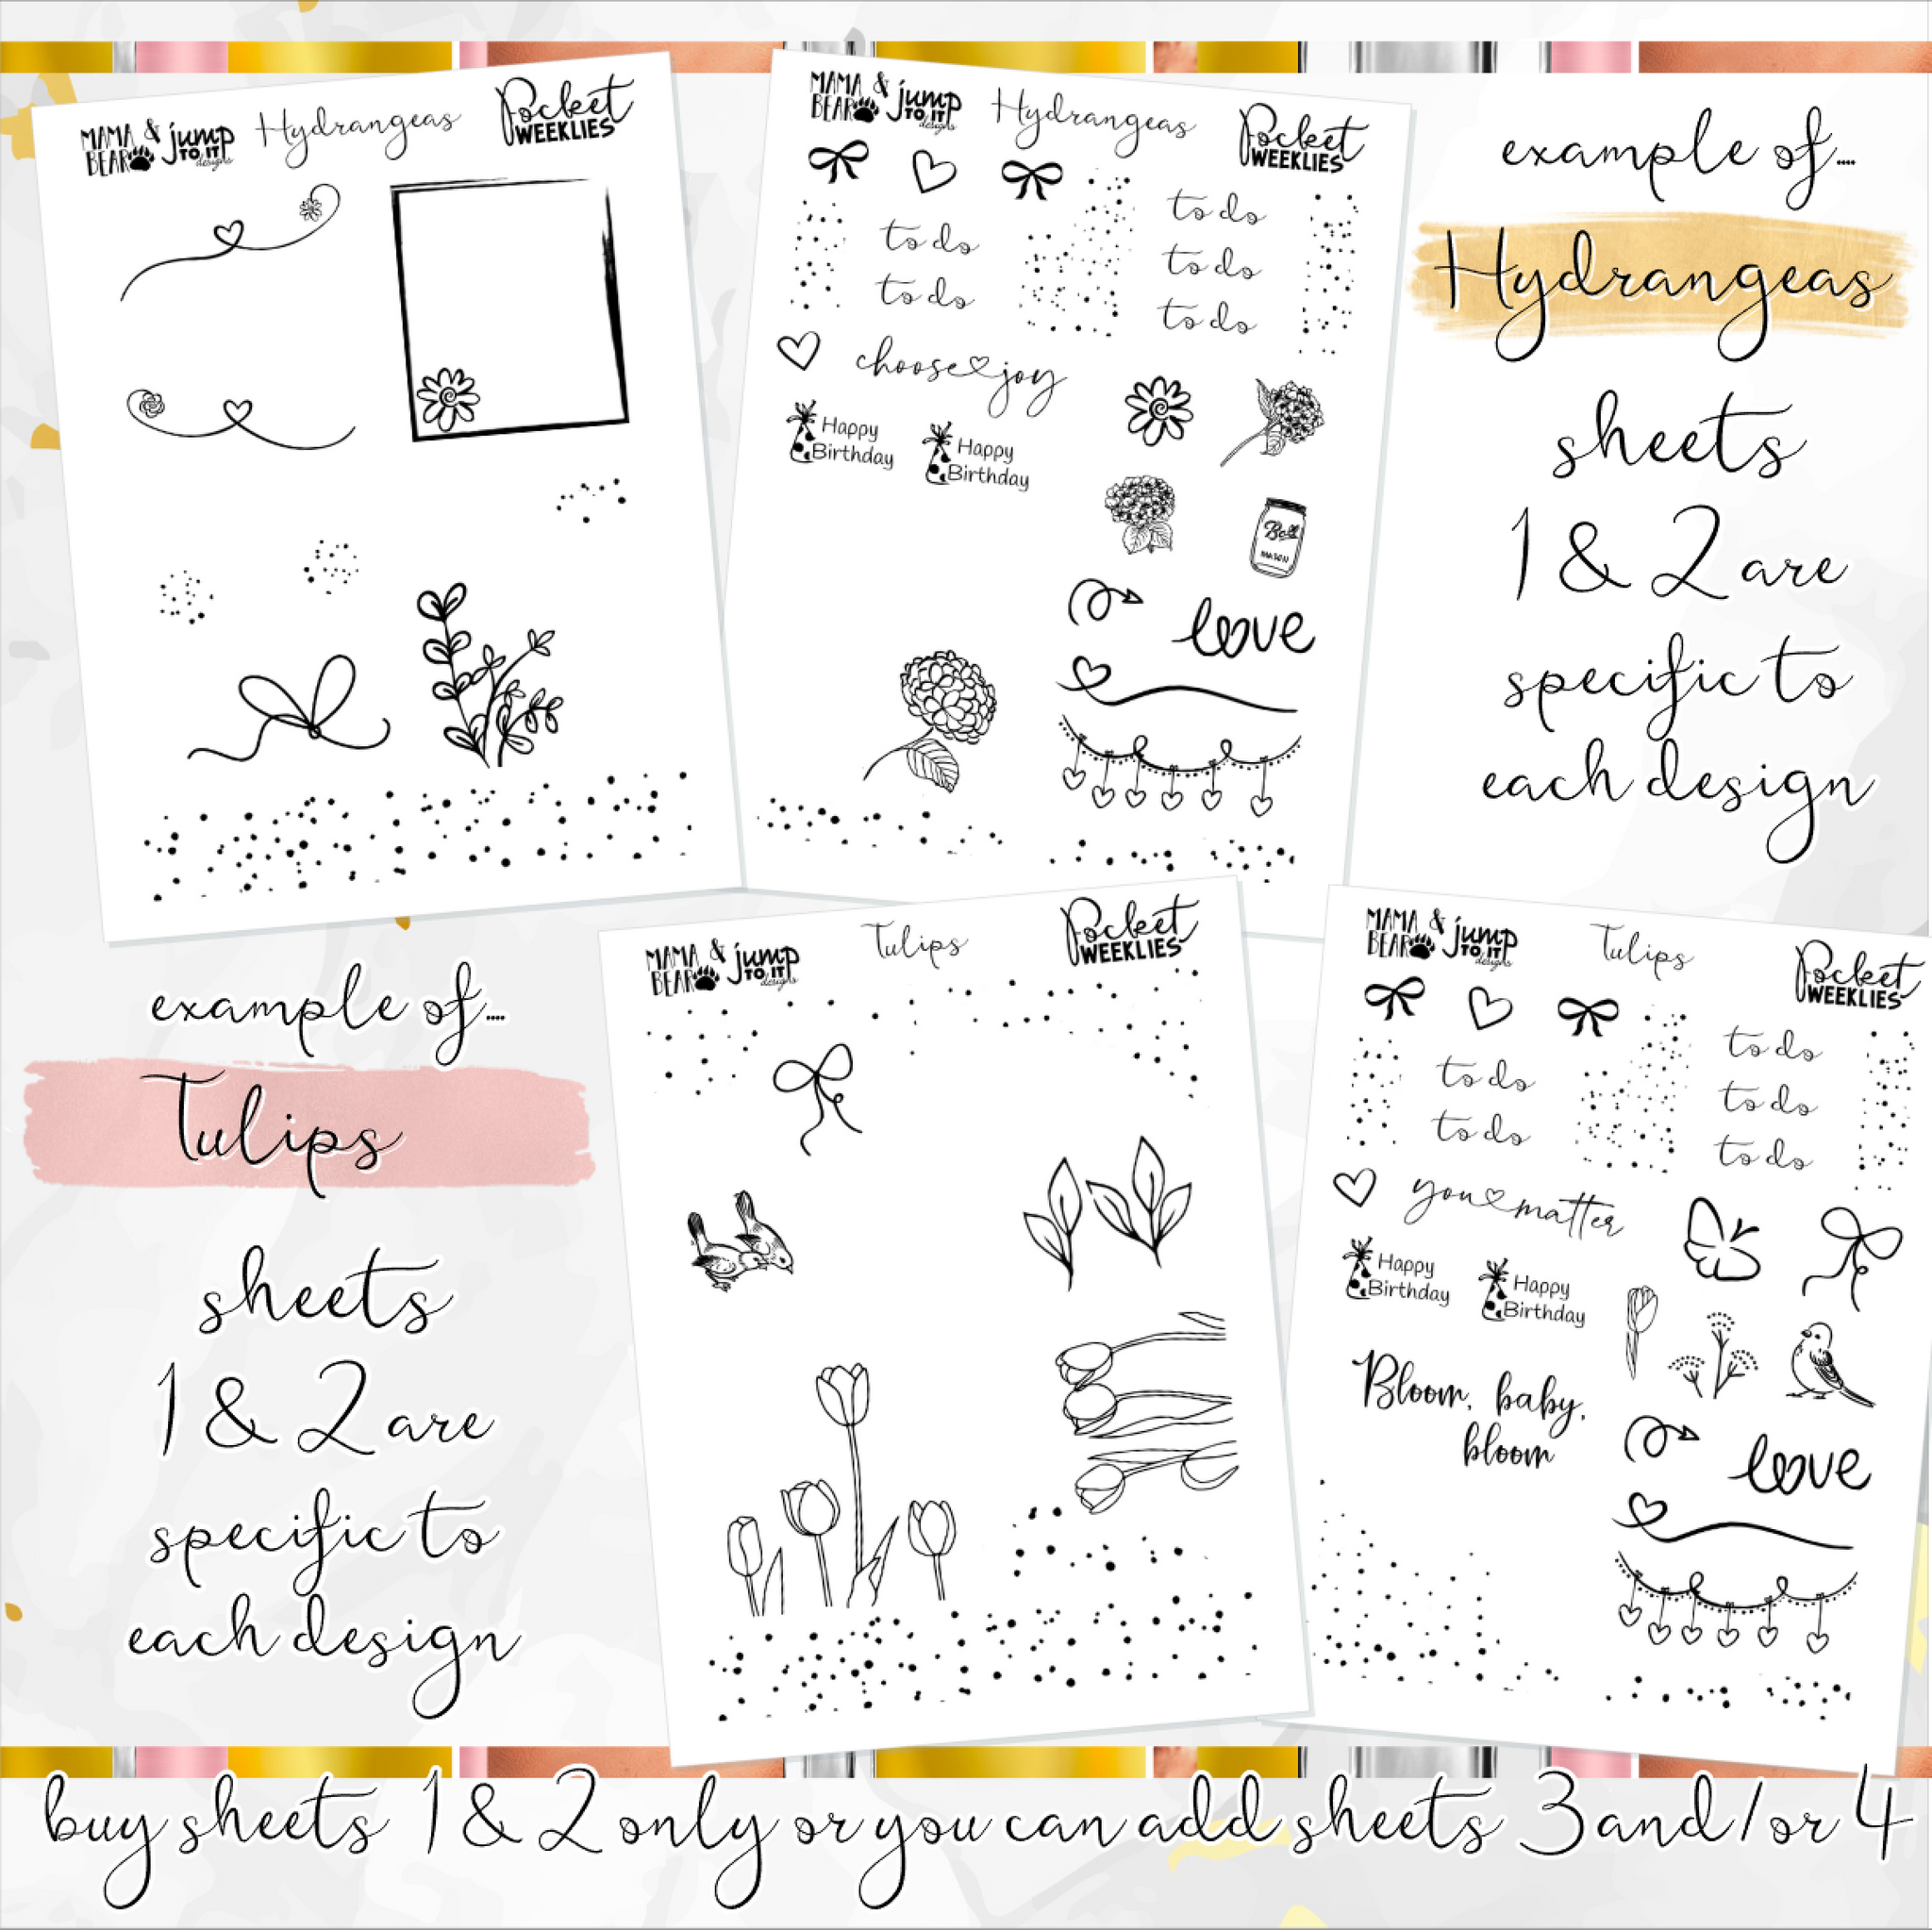 MAMA & jump
BEAR TO IT
designs
Hydrangeas
Pocket
WEEKLIES
MAMA & jump
BEAR TO IT
designs
Hydrangeas
Pocket
WEEKLIES
to do
to do
to do
to do
to do
choose joy
Happy
Birthday
Happy
Birthday
Ball
MASON
love
example of....
Hydrangeas
sheets
1 & 2 are
specific to
each design
example of....
Tulips
sheets
1 & 2 are
specific to
each design
MAMA & jump
BEAR TO IT
designs
Tulips
Pocket
WEEKLIES
MAMA & jump
BEAR TO IT
designs
Tulips
Pocket
WEEKLIES
to do
to do
to do
to do
to do
you matter
Happy
Birthday
Happy
Birthday
Bloom, baby,
bloom
love
buy sheets 1 & 2 only or you can add sheets 3 and/or 4